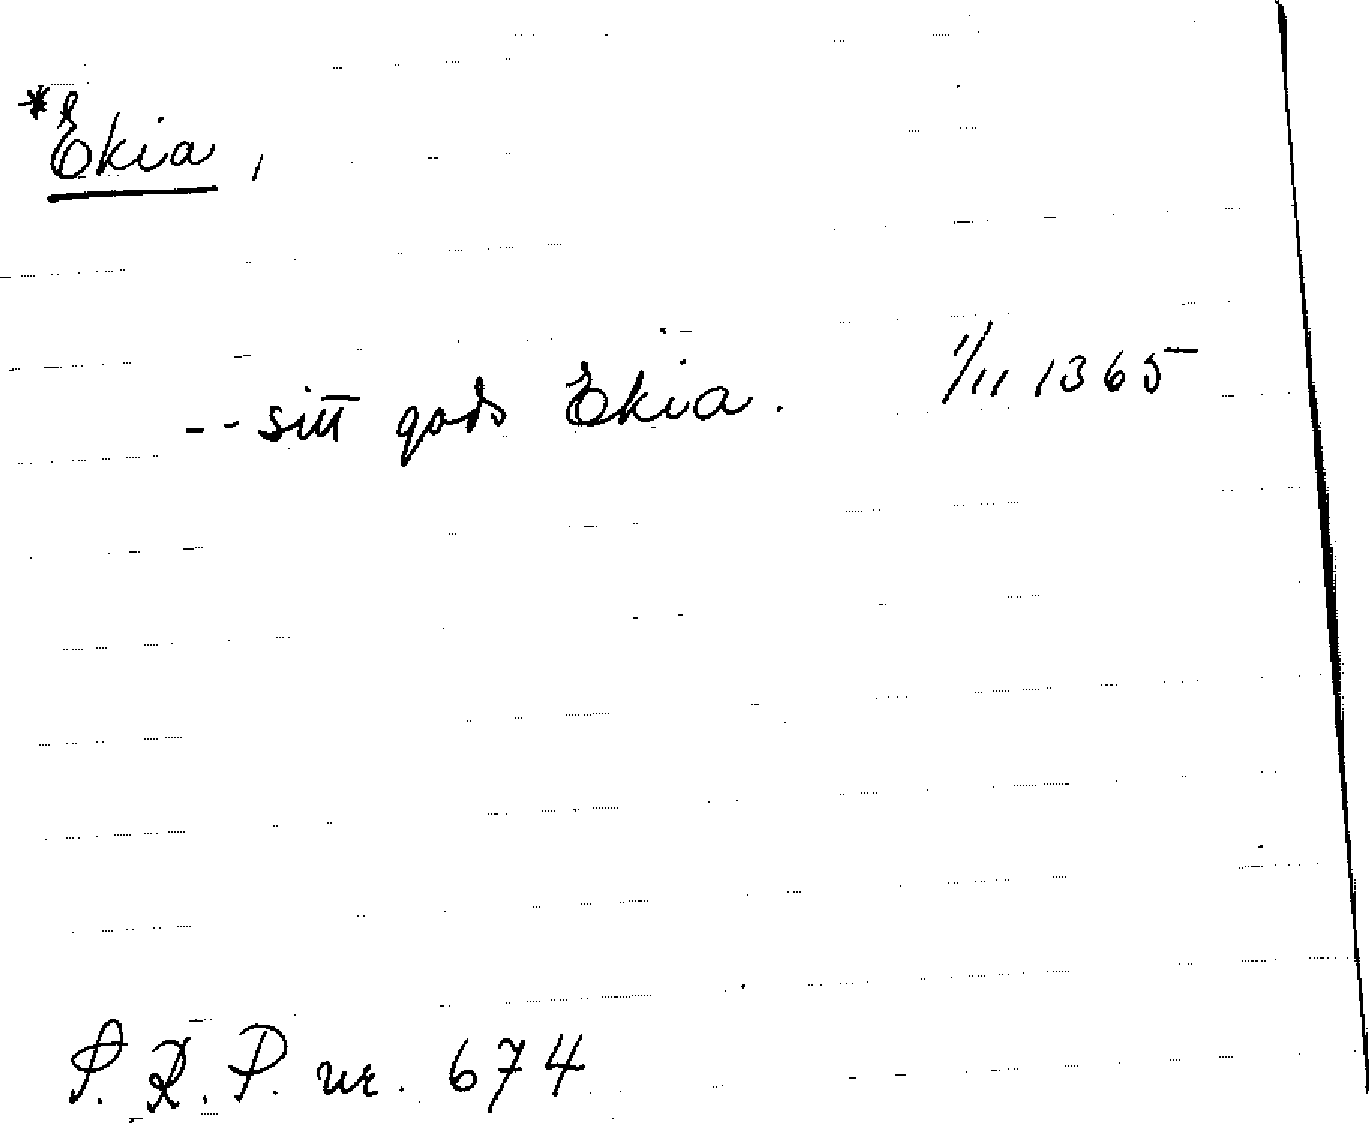 *Ekia,
-- sitt gods Ekia. 1/11 1365
S. R. P. nr. 674